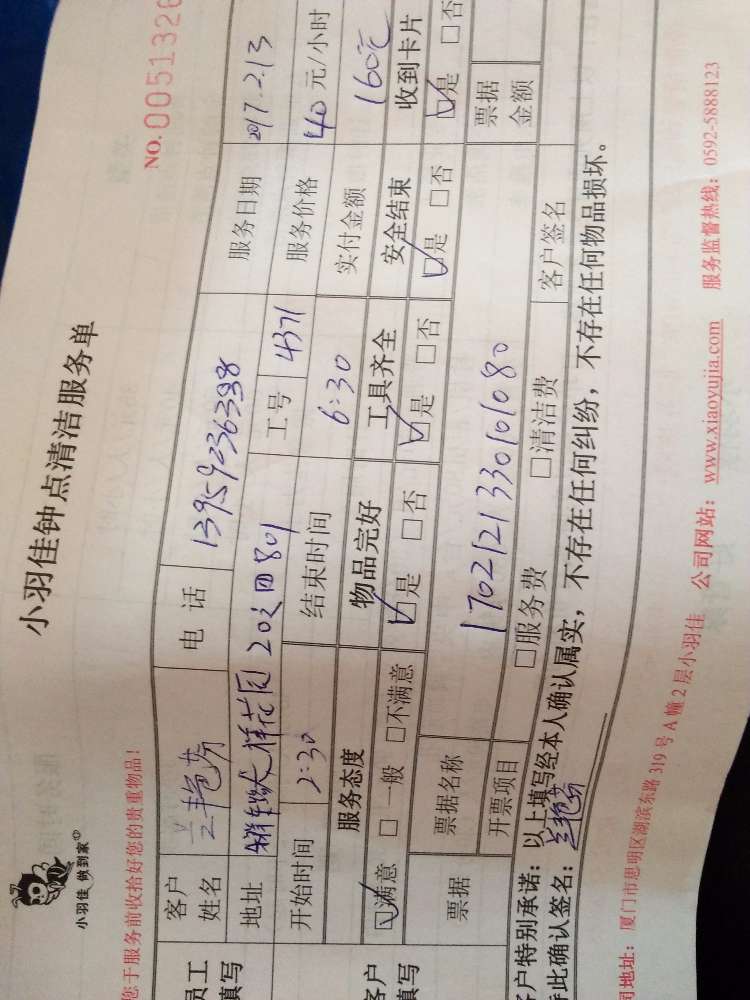 小羽佳 做到家
小羽佳钟点清洁服务单
NO.0051326
您于服务前收拾好您的贵重物品！
员工
填写
客户
姓名
兰艳芬
电 话
13959236398
服务日期
2017.2.13
地址
大祥花园 20之四801
工号
4371
服务价格
40 元/小时
开始时间
2:30
结束时间
6:30
实付金额
160元
客户
填写
服务态度
物品完好
工具齐全
安全结束
收到卡片
☑满意 □ 一般 □不满意
☑是 □否
☑是 □否
☑是 □否
☑是 □否
票据
票据名称
1702121330101080
票据
金额
开票项目
□服务费 □清洁费
客户签名
客户特别承诺：以上填写经本人确认属实，不存在任何纠纷，不存在任何物品损坏。
特此确认签名：兰艳芬
司地址：厦门市思明区湖滨东路 319 号 A 幢 2 层小羽佳 公司网站：www.xiaoyujia.com 服务监督热线：0592-5888123